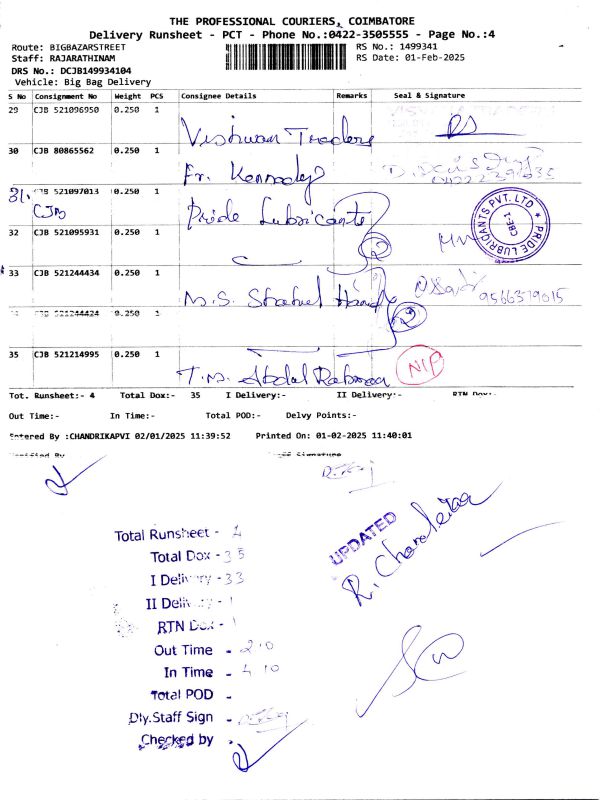 THE PROFESSIONAL COURIERS, COIMBATORE
Delivery Runsheet - PCT - Phone No.:0422-3505555 - Page No.:4
Route: BIGBAZARSTREET RS No.: 1499341
Staff: RAJARATHINAM RS Date: 01-Feb-2025
DRS No.: DCJB149934104
Vehicle: Big Bag Delivery
S No Consignment No Weight PCS Consignee Details Remarks Seal & Signature
29 CJB 521096950 0.250 1
Vishwan Traders
30 CJB 80865562 0.250 1
Fr. Kennady
31. CJB 521097013 0.250 1
CJB
Pride Lubricants
PRIDE LUBRICANTS PVT. LTD * CBE-1 *
32 CJB 521095931 0.250 1
33 CJB 521244434 0.250 1
M.S. 9566379015
CJB 521244424 0.250 1
35 CJB 521214995 0.250 1
T.M. Abdul Rahman NIP
Tot. Runsheet:- 4 Total Dox:- 35 I Delivery:- II Delivery:- RTN Dox:-
Out Time:- In Time:- Total POD:- Delvy Points:-
Entered By :CHANDRIKAPVI 02/01/2025 11:39:52 Printed On: 01-02-2025 11:40:01
Verified By Signature
Total Runsheet - 4
Total Dox - 35
I Delivery - 33
II Delivery - 1
RTN Dox - 1
Out Time - 2.0
In Time - 4.10
Total POD -
Dly.Staff Sign -
Checked by -
UPDATED